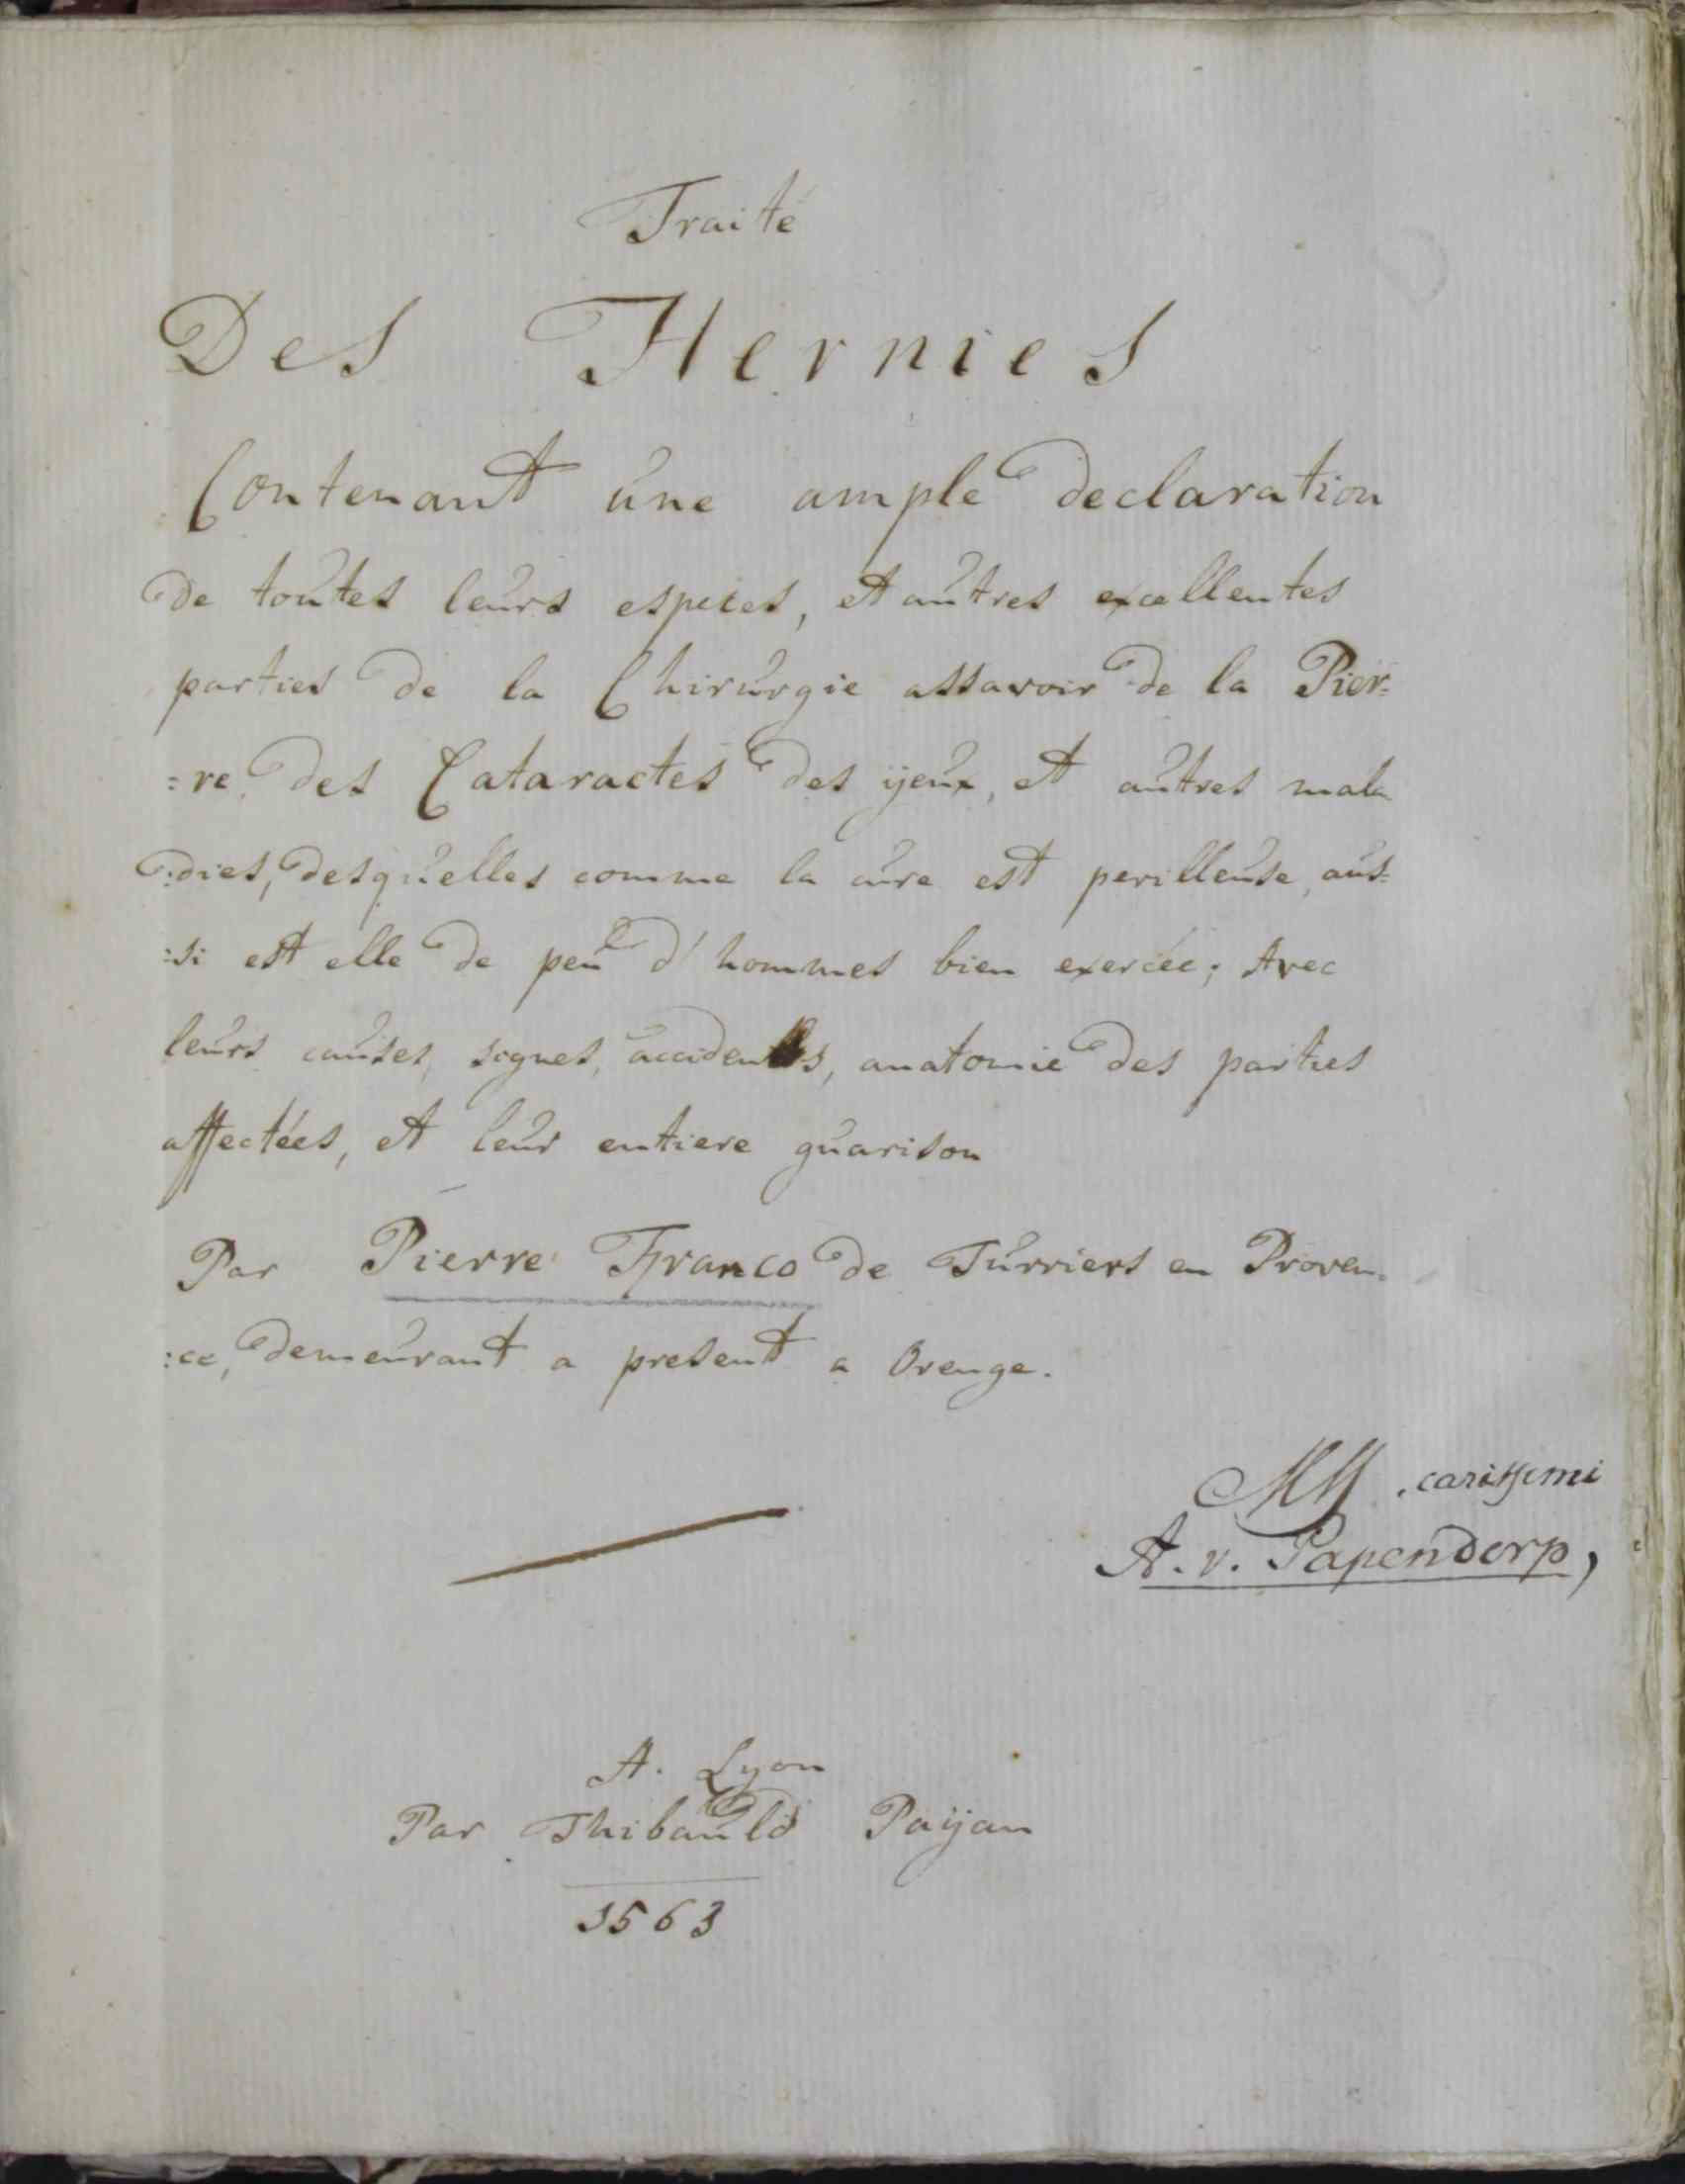 Traité
Des Hernies
Contenant une ample declaration
de toutes leurs especes, et autres excellentes
parties de la Chirurgie assavoir de la Pier=
=re, des Cataractes des ÿeux, et autres mala
:dies, desquelles comme la cure est perilleuse, aus=
:si est elle de peu d'hommes bien exercée; Avec
leurs causes, signes, accidents, anatomie des parties
affectées, et leur entiere guarison
Par Pierre Franco de Turriers en Proven=
:ce, demeurant a present a Orenge.
carissimi
A. v. Papendorp,
A. Lyon
Par Thibauld Paÿan
1563